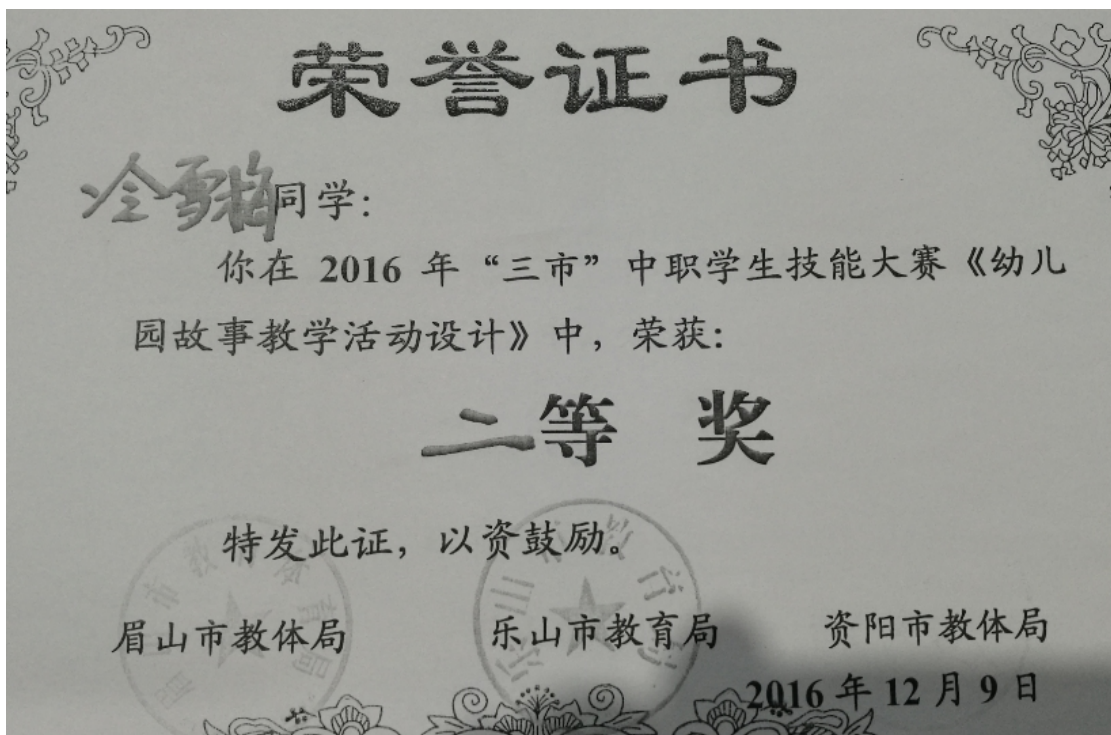 荣誉证书
冷雪梅同学:
你在 2016 年“三市”中职学生技能大赛《幼儿
园故事教学活动设计》中，荣获:
二等 奖
特发此证，以资鼓励。
眉山市教体局 乐山市教育局 资阳市教体局
2016 年 12 月 9 日
乐山市教育局